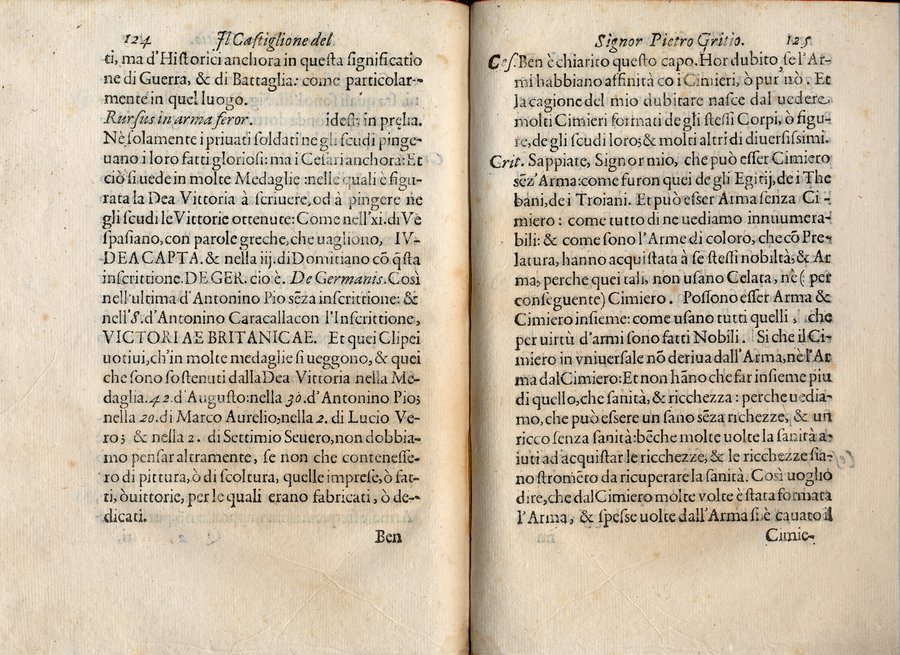 124 Il Castiglione del
ti, ma d'Historici anchora in questa significatio
ne di Guerra, & di Battaglia: come particolar-
mente in quel luogo.
Rursus in arma feror. idest; in pręlia.
Nè solamente i priuati soldati ne gli scudi pinge-
uano i loro fatti gloriosi: ma i Cesari anchora: Et
ciò si uede in molte Medaglie: nelle quali è figu-
rata la Dea Vittoria à scriuere, od à pingere ne
gli scudi le Vittorie ottenute: Come nell'xi. di Ve
spasiano, con parole greche, che uagliono, IV-
DEA CAPTA. & nella iij. di Domitiano cõ q̃sta
inscrittione. DE GER. cio è. De Germanis. Così
nell'ultima d'Antonino Pio sẽza inscrittione: &
nell'8. d'Antonino Caracalla con l'Inscrittione,
VICTORIAE BRITANICAE. Et quei Clipei
uotiui, ch'in molte medaglie si ueggono, & quei
che sono sostenuti dalla Dea Vittoria nella Me-
daglia. 42. d'Augusto: nella 30. d'Antonino Pio;
nella 20. di Marco Aurelio; nella 2. di Lucio Ve-
ro; & nella 2. di Settimio Seuero, non dobbia-
mo pensar altramente, se non che contenesse-
ro di pittura, ò di scoltura, quelle imprese, ò fat-
ti, ò uittorie, per le quali erano fabricati, ò de-
dicati.
Ben
Signor Pietro Gritio. 125
Ces. Ben è chiarito questo capo. Hor dubito, se l'Ar-
mi habbiano affinità co i Cimieri, ò pur nò. Et
la cagione del mio dubitare nasce dal uedere
molti Cimieri formati de gli stessi Corpi, ò figu-
re, de gli scudi loro; & molti altri di diuersissimi.
Crit. Sappiate, Signor mio, che può esser Cimiero
sẽz'Arma: come furon quei de gli Egitij, de i The
bani, de i Troiani. Et può esser Arma senza Ci-
miero: come tutto di ne uediamo innuumera-
bili: & come sono l'Arme di coloro, che cõ Pre-
latura, hanno acquistata à se stessi nobiltà; & Ar
ma, perche quei tali, non usano Celata, nè (per
conseguente) Cimiero. Possono esser Arma &
Cimiero insieme: come usano tutti quelli, che
per uirtù d'armi sono fatti Nobili. Si che il Ci-
miero in vniuersale nõ deriua dall'Arma, nè l'Ar
ma dal Cimiero: Et non hãno che far insieme piu
di quello, che sanità, & ricchezza: perche uedia-
mo, che può essere un sano sẽza richezze, & un
ricco senza sanità: bẽche molte uolte la sanità a-
iuti ad acquistar le ricchezze, & le ricchezze sia-
no strometo da ricuperare la sanità. Così uoglio
dire, che dal Cimiero molte volte è stata formata
l'Arma, & spesse uolte dall'Arma si è cauato il
Cimie-